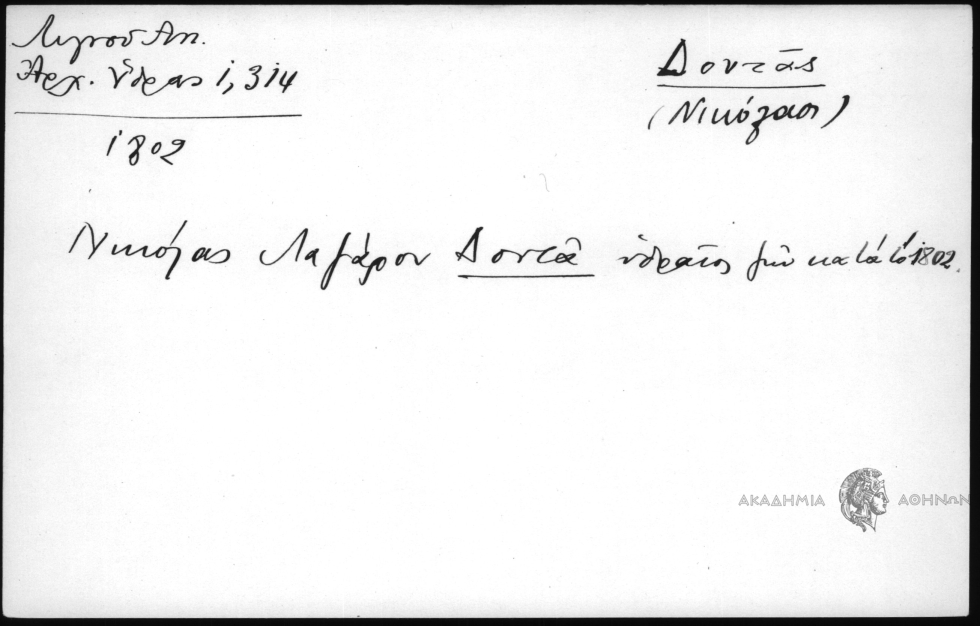 Λιγνοῦ Ἀντ.
Ἀρχ. Ὕδρας 1, 314
1802
Δοντᾶς
(Νικόλαος)
Νικόλας Λαζάρου Δοντᾶ ὑδραῖος ζῶν κατὰ τὸ 1802.
ΑΚΑΔΗΜΙΑ ΑΘΗΝΩΝ